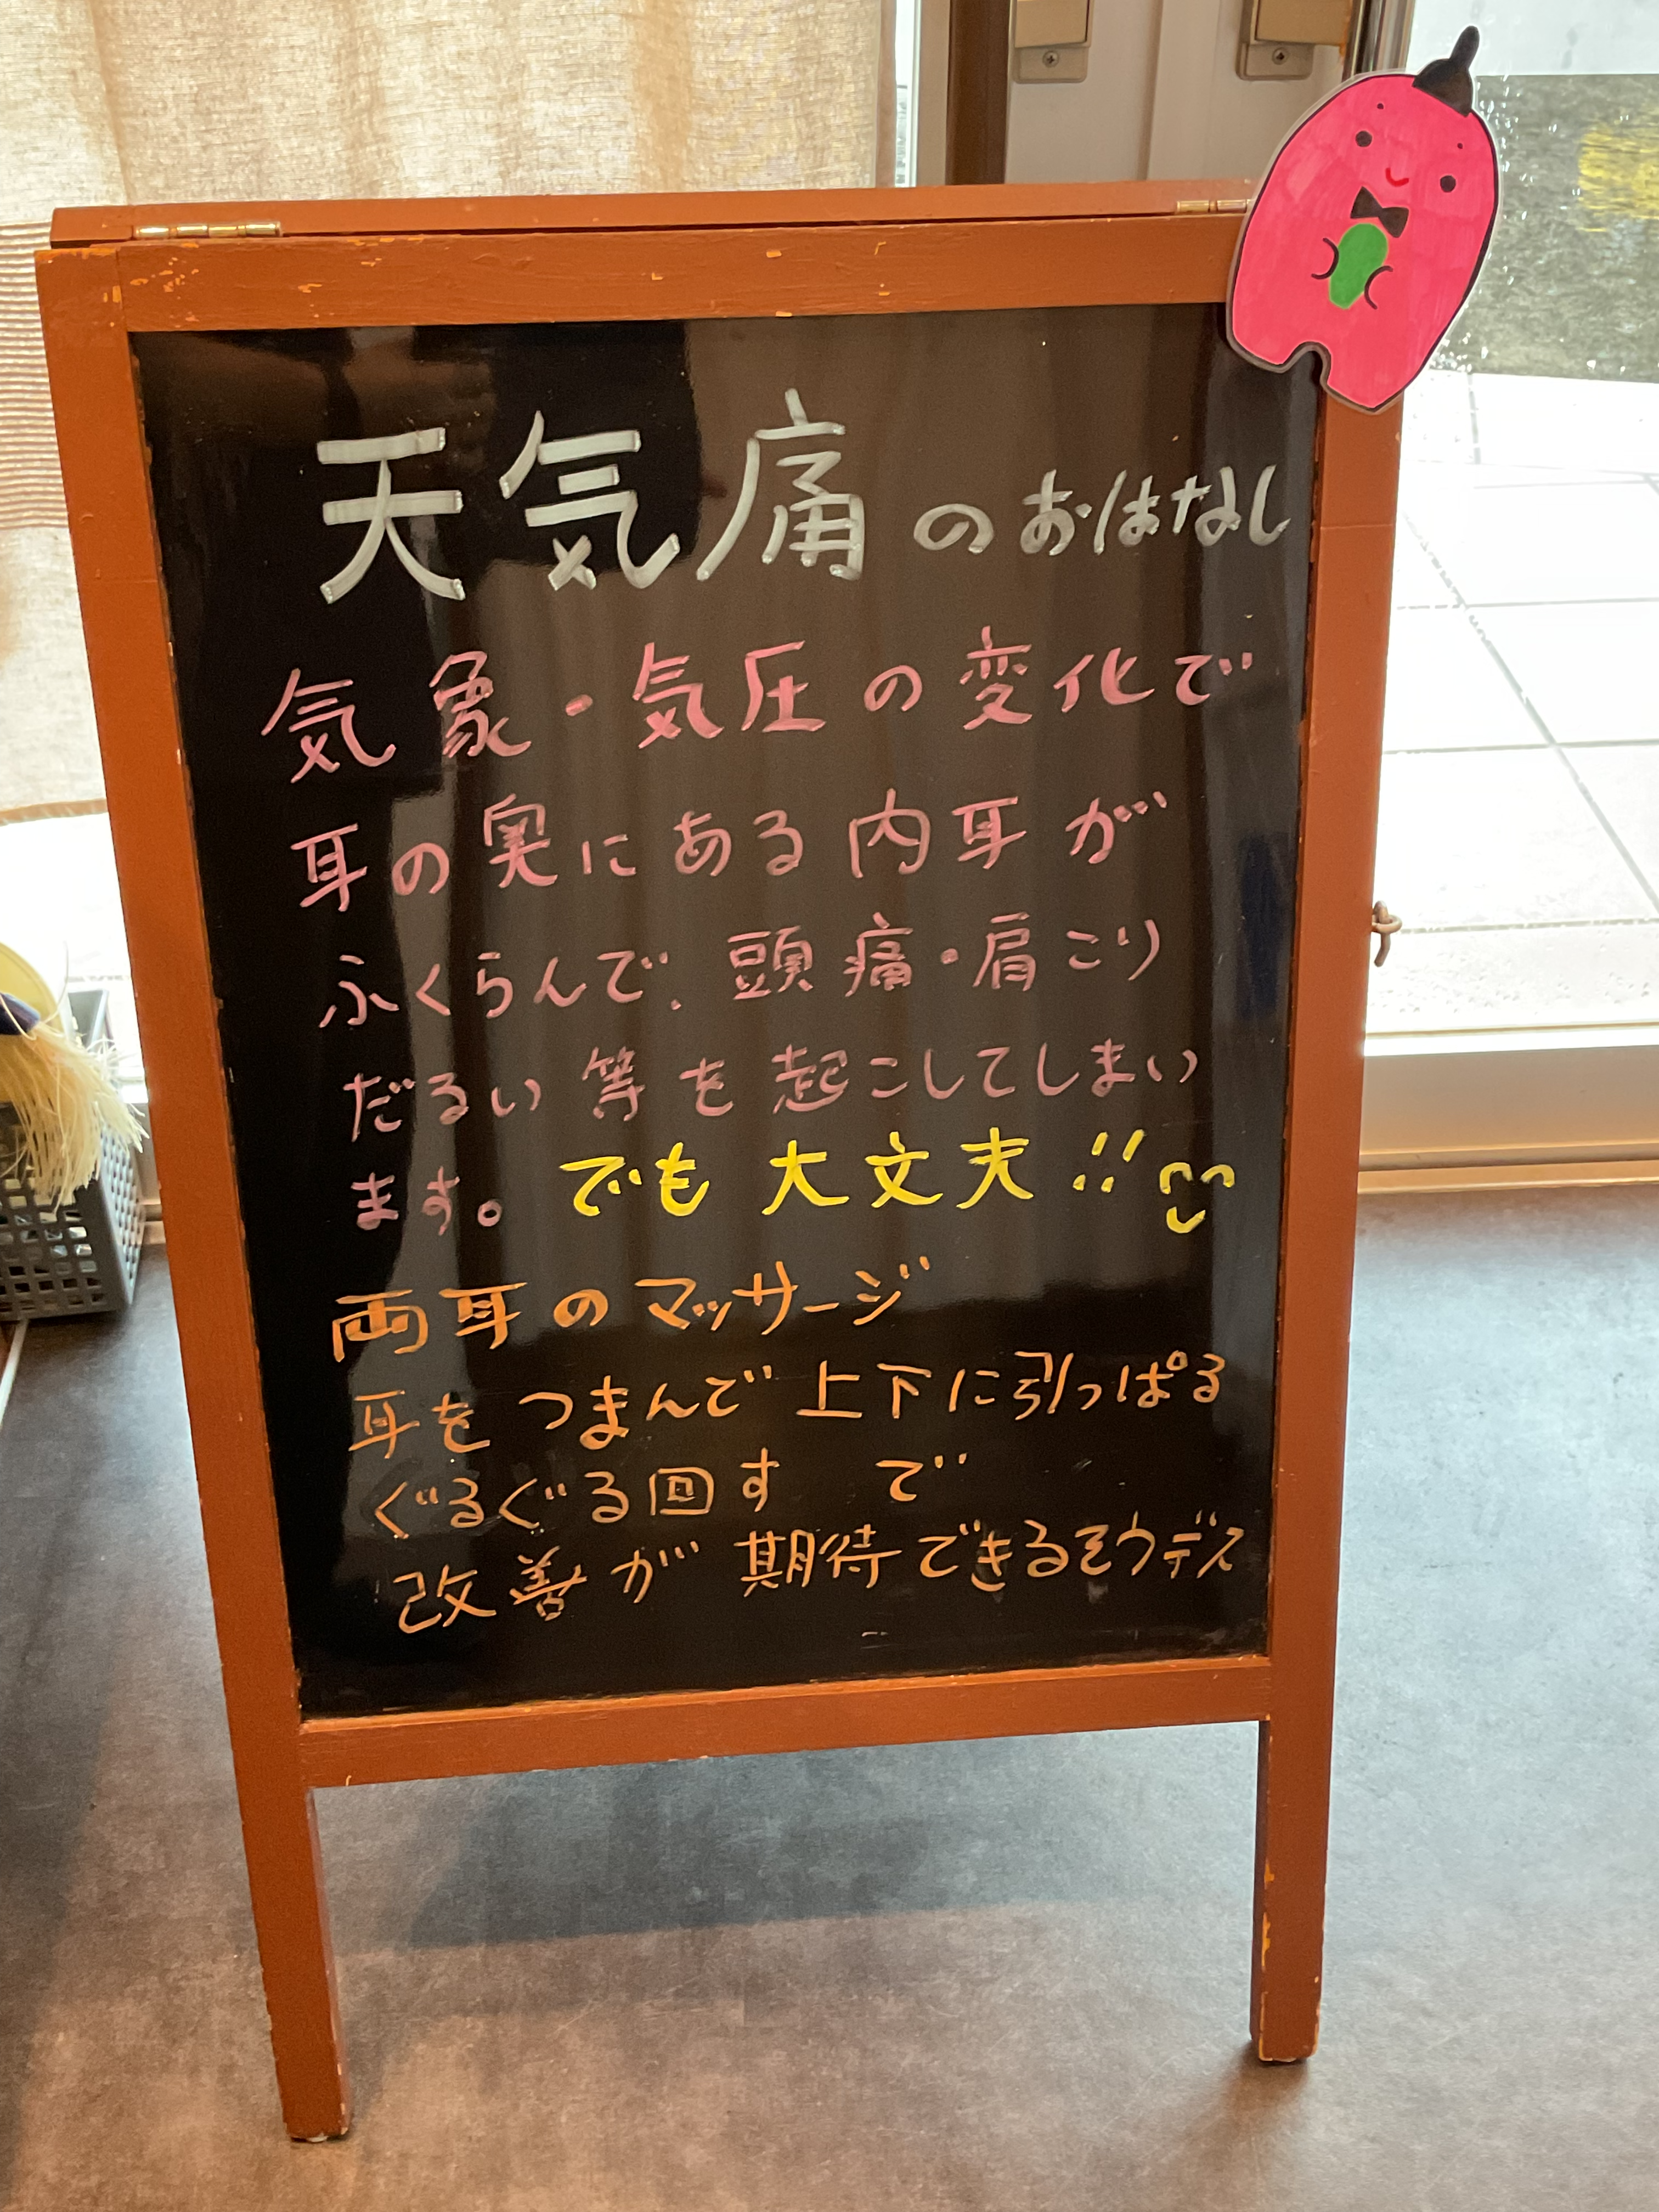 天気痛のおはなし
気象・気圧の変化で
耳の奥にある内耳が
ふくらんで、頭痛・肩こり
だるい等を起こしてしまい
ます。でも大丈夫!!
両耳のマッサージ
耳をつまんで上下に引っぱる
ぐるぐる回す で
改善が期待できるそウデス